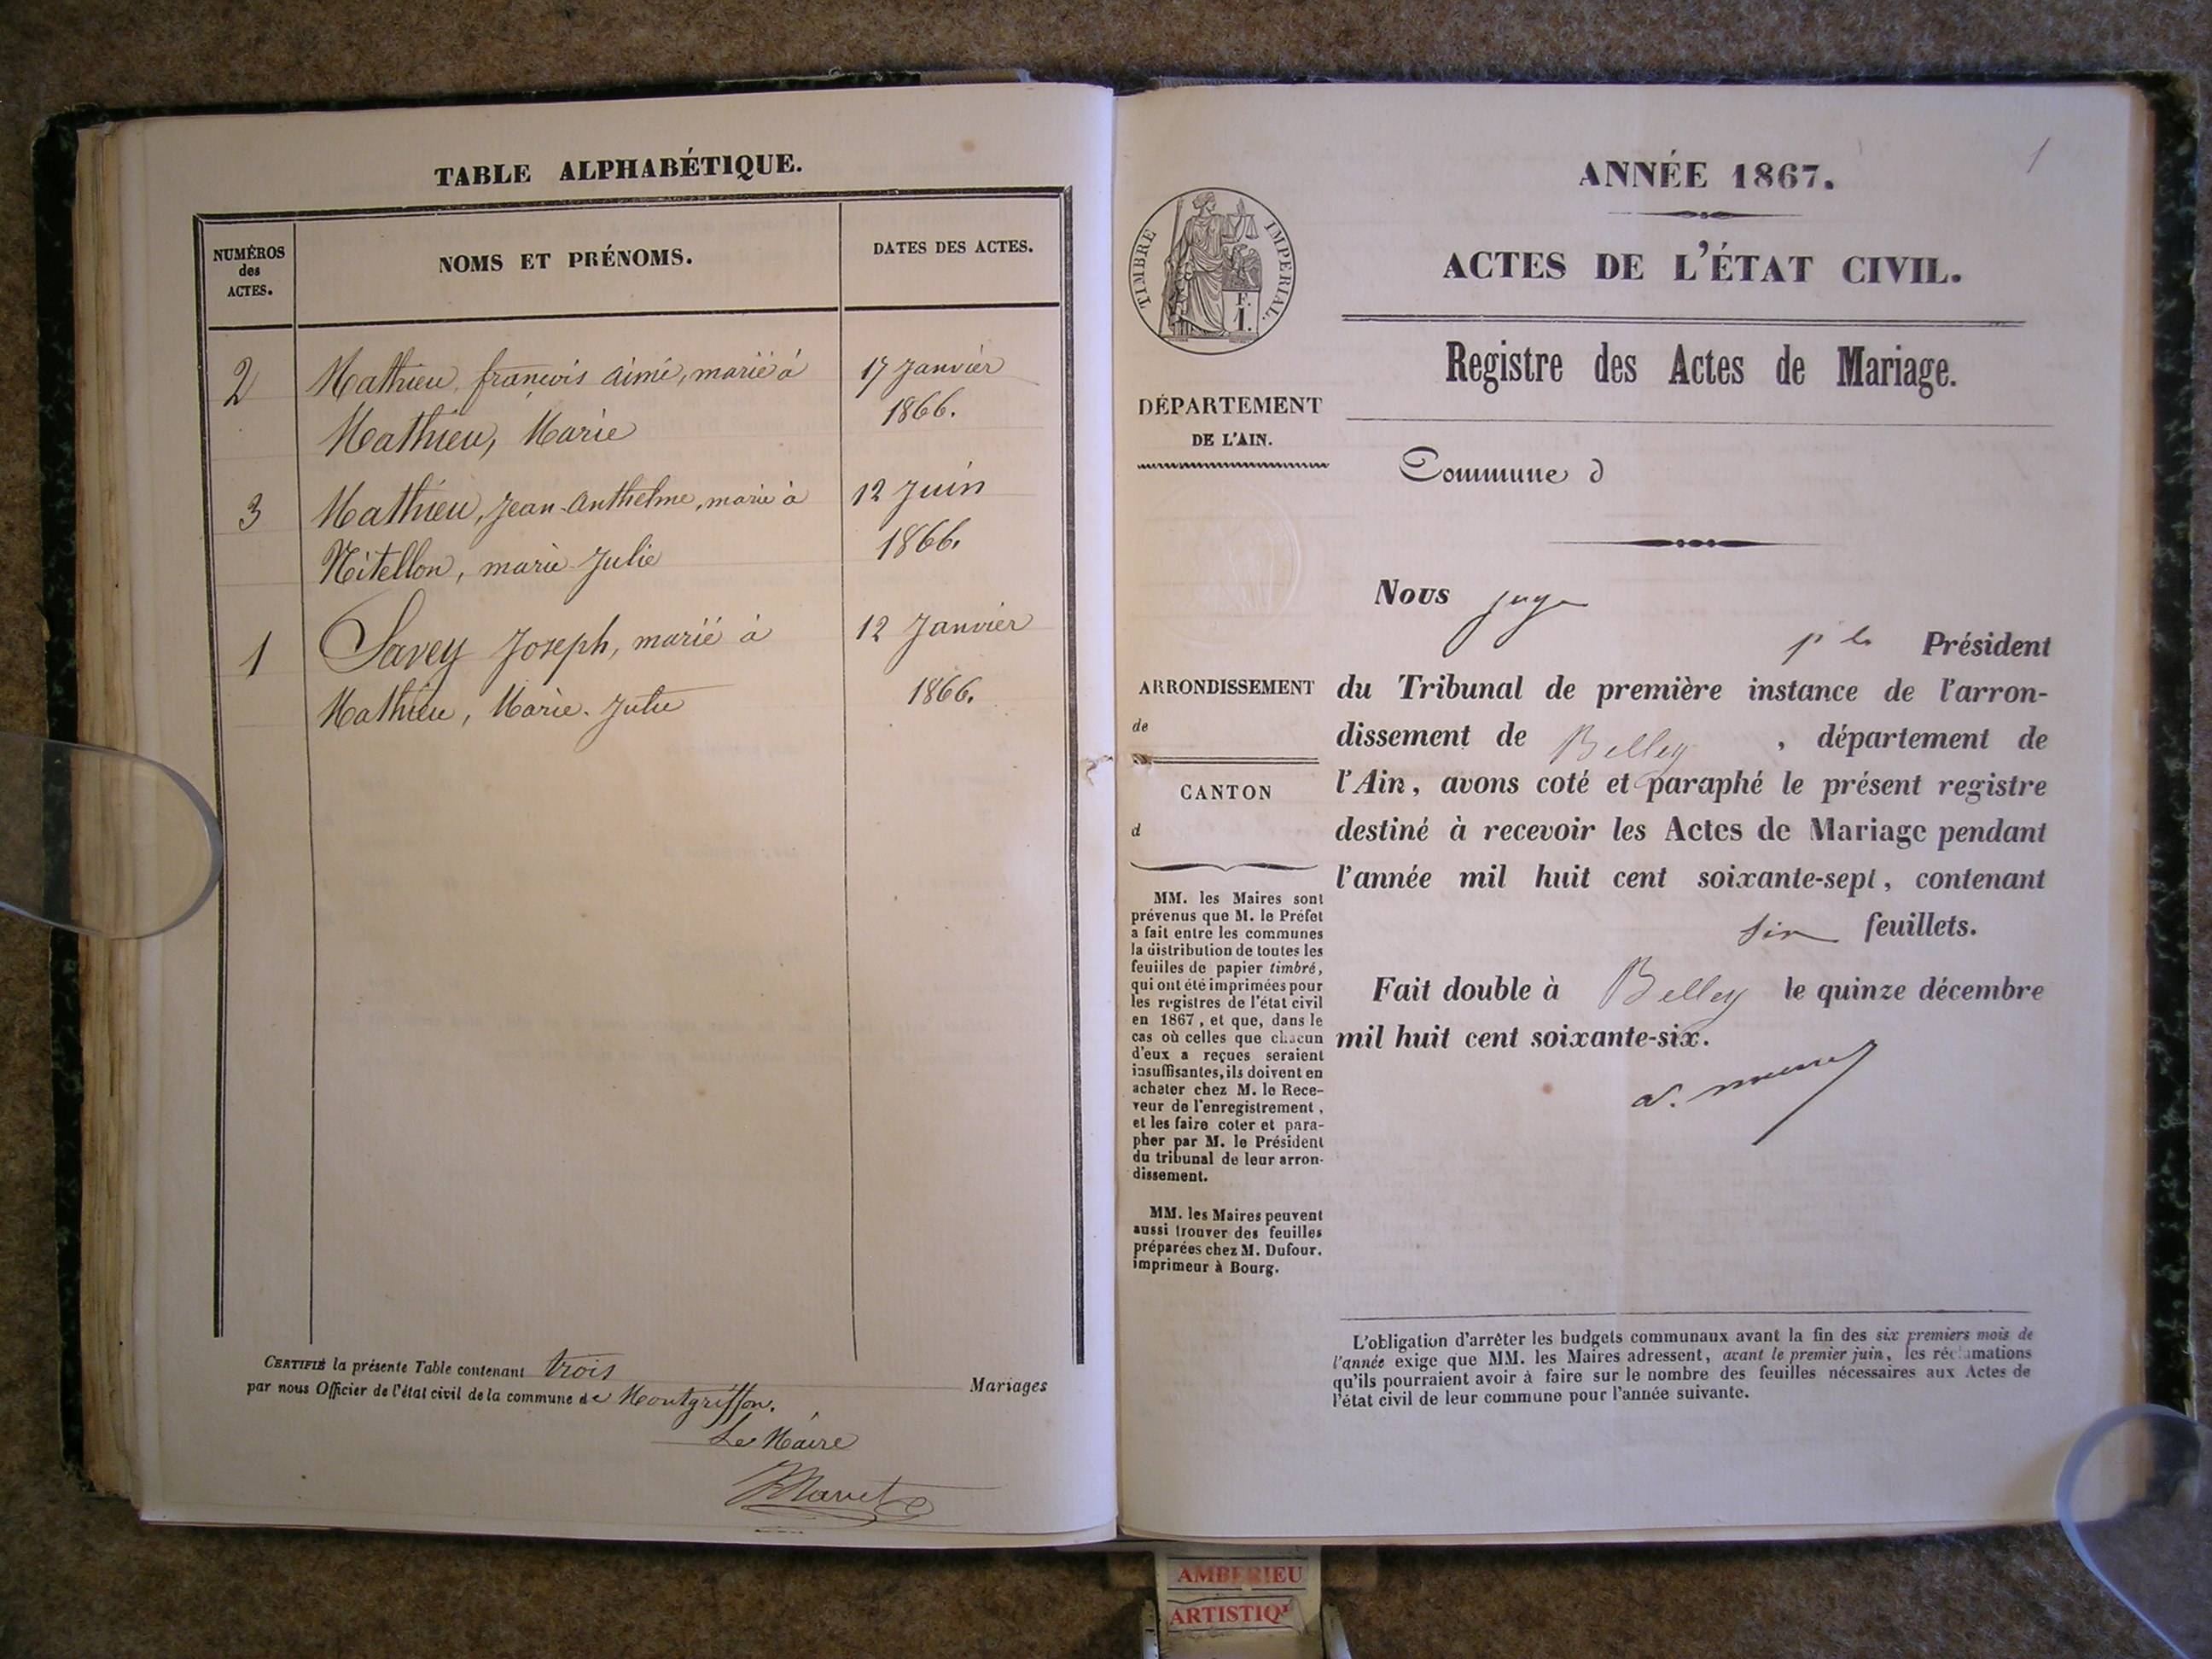 TABLE ALPHABÉTIQUE.
NUMÉROS
des
ACTES.
NOMS ET PRÉNOMS.
DATES DES ACTES.
2
Mathieu, françois aimé, marié à
17 Janvier
Mathieu, Marie
1866.
3
Mathieu, Jean-Anthelme, marié à
12 Juin
Nitellon, marie-Julie
1866.
1
Savey Joseph, marié à
12 Janvier
Mathieu, Marie-Julie
1866.
CERTIFIÉ la présente Table contenant trois
Mariages
par nous Officier de l'état civil de la commune de Montgriffon.
Le Maire
1
ANNÉE 1867.
ACTES DE L'ÉTAT CIVIL.
TIMBRE IMPERIAL.
F.
1.
Registre des Actes de Mariage.
DÉPARTEMENT
DE L'AIN.
Commune d
Nous juge
Président
ARRONDISSEMENT
de
CANTON
d
du Tribunal de première instance de l'arron-
dissement de Belley, département de
l'Ain, avons coté et paraphé le présent registre
destiné à recevoir les Actes de Mariage pendant
l'année mil huit cent soixante-sept, contenant
six feuillets.
Fait double à Belley le quinze décembre
mil huit cent soixante-six.
MM. les Maires sont
prévenus que M. le Préfet
a fait entre les communes
la distribution de toutes les
feuilles de papier timbré,
qui ont été imprimées pour
les registres de l'état civil
en 1867, et que, dans le
cas où celles que chacun
d'eux a reçues seraient
insuffisantes, ils doivent en
acheter chez M. le Rece-
veur de l'enregistrement,
et les faire coter et para-
pher par M. le Président
du tribunal de leur arron-
dissement.
MM. les Maires peuvent
aussi trouver des feuilles
préparées chez M. Dufour.
imprimeur à Bourg.
L'obligation d'arrêter les budgets communaux avant la fin des six premiers mois de
l'année exige que MM. les Maires adressent, avant le premier juin, les réclamations
qu'ils pourraient avoir à faire sur le nombre des feuilles nécessaires aux Actes de
l'état civil de leur commune pour l'année suivante.
AMBERIEU
ARTISTIQ